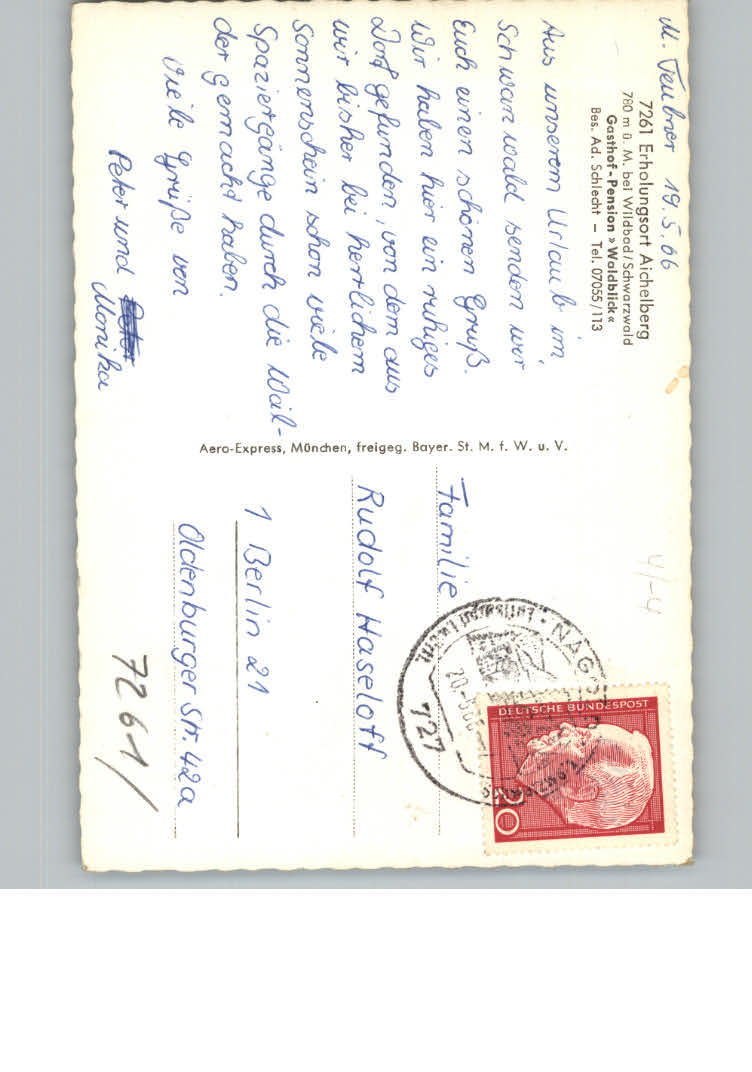 M. Teubner 19.5.66
7261 Erholungsort Aichelberg
780 m ü. M. bei Wildbad/Schwarzwald
Gasthof-Pension »Waldblick«
Bes. Ad. Schlecht — Tel. 07055/113
Aus unserem Urlaub im
Schwarzwald senden wir
Euch einen schönen Gruß.
Wir haben hier ein ruhiges
Dorf gefunden, von dem aus
wir bisher bei herrlichem
Sonnenschein schon viele
Spaziergänge durch die Wäl-
der gemacht haben.
Viele Grüße von
Peter und
Monika
Aero-Express, München, freigeg. Bayer. St. M. f. W. u. V.
4/-4
NAGOLD
Luftkurort
20.-5.66
727
DEUTSCHE BUNDESPOST
10
Familie
Rudolf Haseloff
1 Berlin 21
Oldenburger Str. 42a
7261/